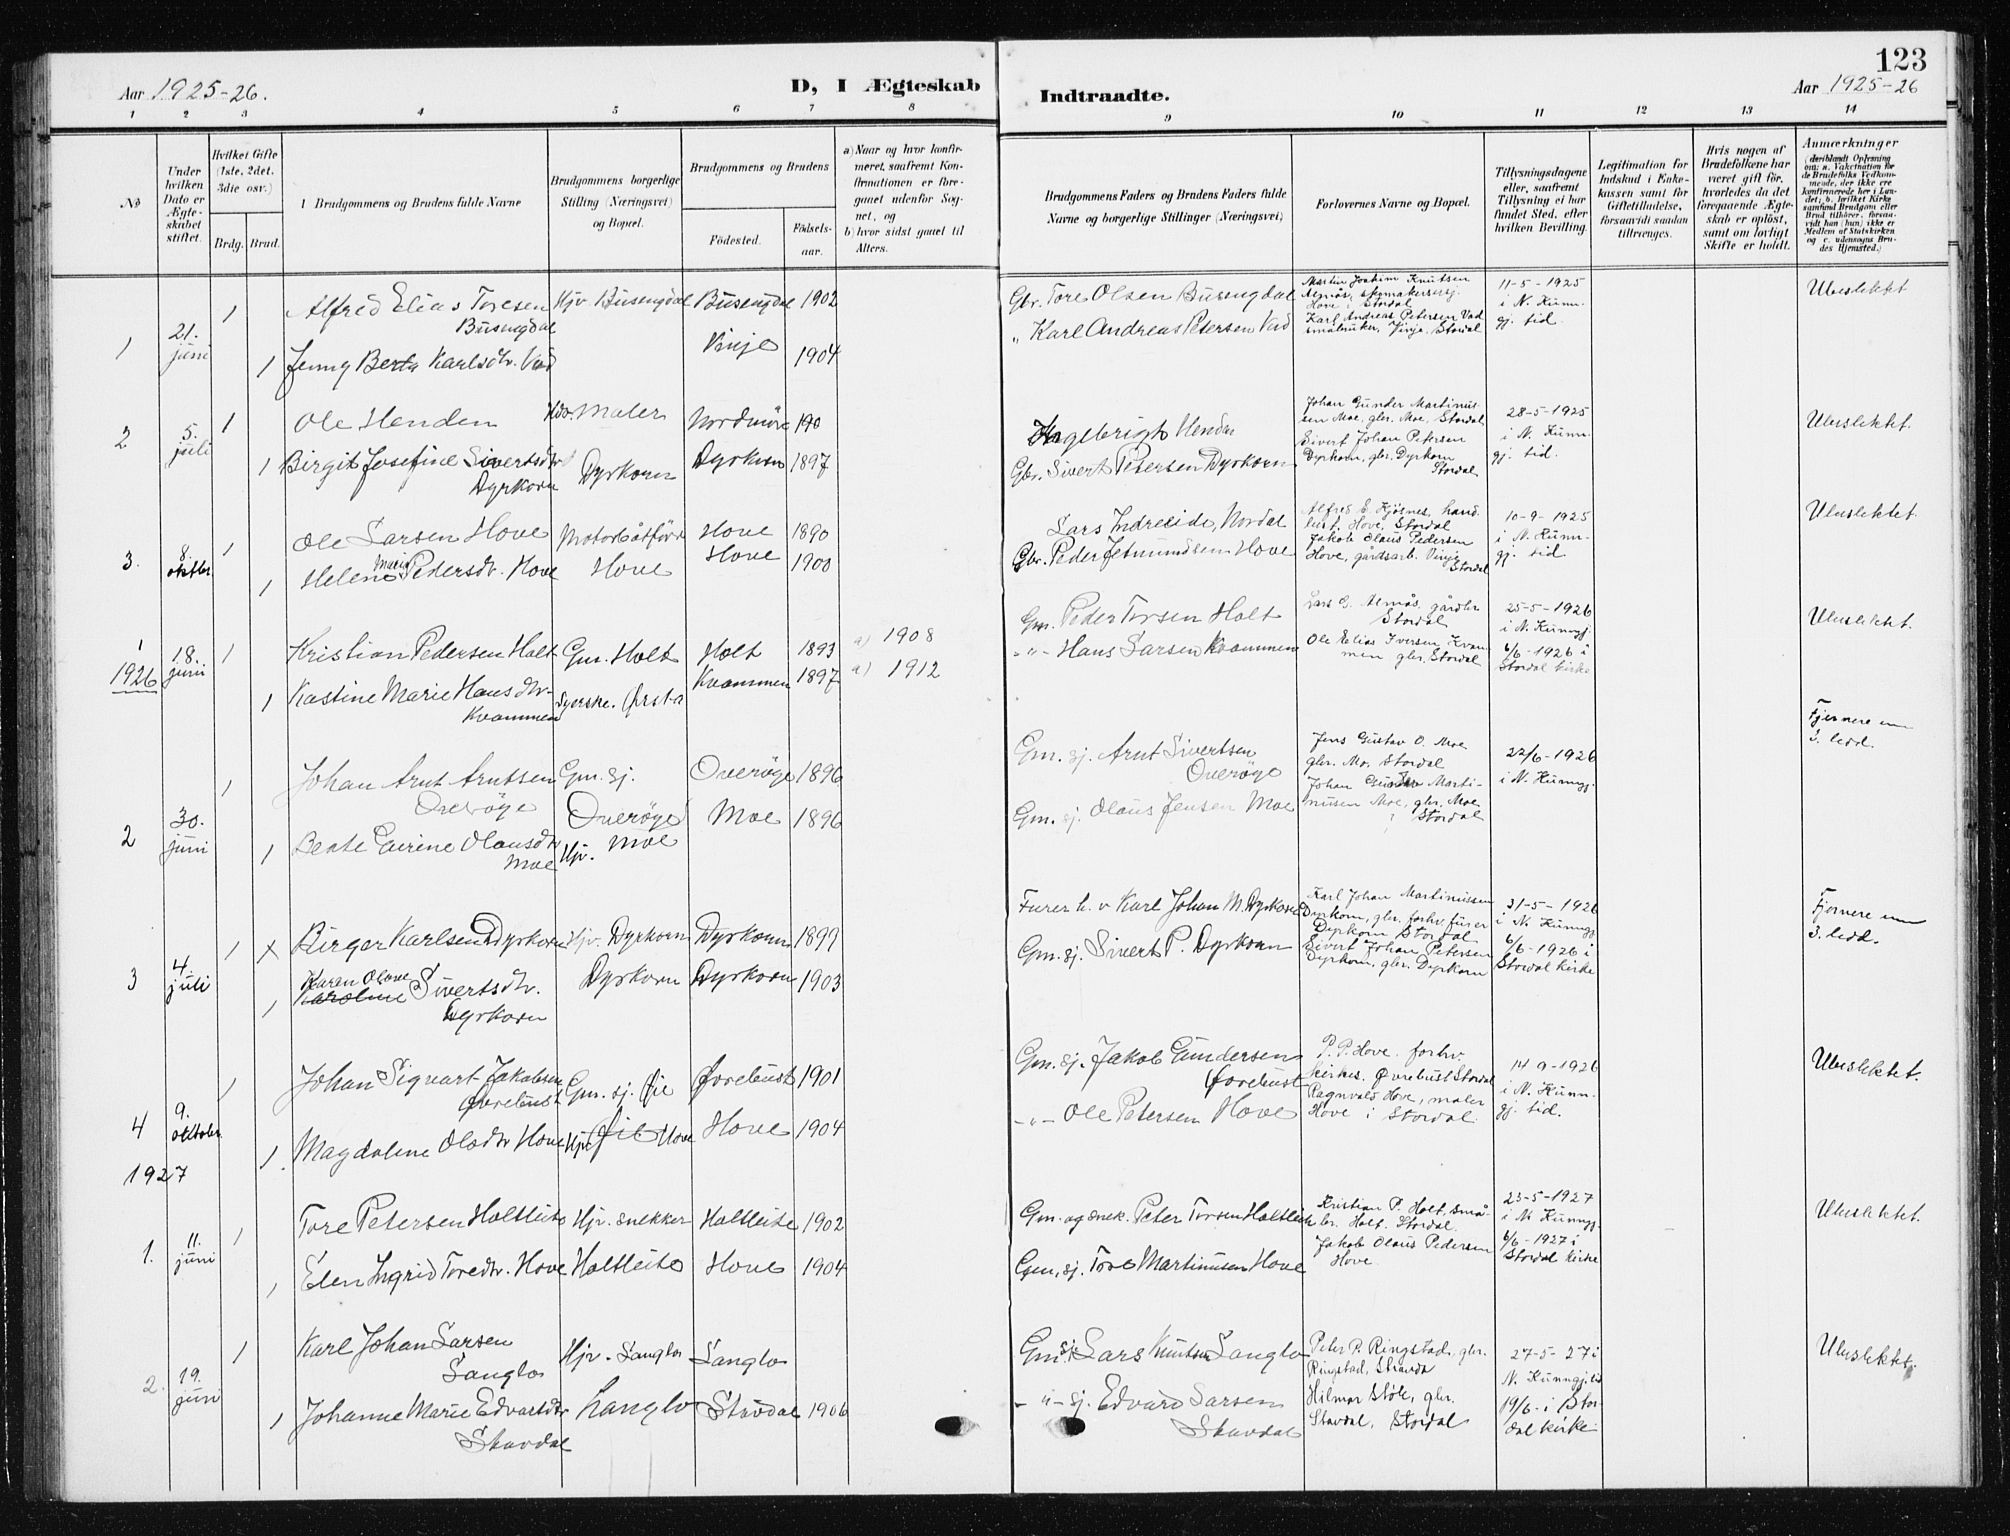 123
Aar 1925-26.
D, I Ægteskab
Indtraadte.
Aar 1925-26
1 2 3 4 5 6 7 8 9 10 11 12 13 14
No
Under hvilken Dato er Ægteskabet stiftet.
Hvilket Gifte (1ste, 2det, 3die osv.)
Brdg. Brud.
Brudgommens og Brudens fulde Navne
Brudgommens borgerlige Stilling (Næringsvei) og Bopæl.
Brudgommens og Brudens
Födested.
Födselsaar.
a) Naar og hvor konfirmeret, saafremt Konfirmationen er foregaaet udenfor Sognet, og
b) hvor sidst gaaet til Alters.
Brudgommens Faders og Brudens Faders fulde Navne og borgerlige Stillinger (Næringsvei)
Forlovernes Navne og Bopæl.
Tillysningsdagene eller, saafremt Tillysning ei har fundet Sted, efter hvilken Bevilling.
Legitimation for Indskud i Enkekassen samt for Giftetilladelse, forsaavidt saadan tiltrænges.
Hvis nogen af Brudefolkene har været gift før, hvorledes da det foregaaende Ægteskab er opløst, samt om lovligt Skifte er holdt.
Anmærkninger
1
21. juni
1
Alfred Elias Toresen Busengdal
Hjv. Busengdal
Busengdal
1902
Gbr. Tore Olsen Busengdal
Martin Joakim Knutsen
Almås, skomakersvj.
Hove i Stordal
11-5-1925
i N. Kunngj. tid.
Ubeslektet
1
Jenny Berta Karlsdtr. Vad
Vinje
1904
" Karl Andreas Petersen Vad
Karl Andreas Petersen Vad
småbruker, Vinje, Stordal
2
5. juli
1
Ole Henden
Maler
Nordmøre
190
Ingebrigt Henden
Johan Gunder Martinussen Moe, gbr. Moe, Stordal
28-5-1925
i N. Kunngj. tid.
Ubeslektet.
1
Birgit Josefine Sivertsdtr Dyrkorn
Dyrkorn
Dyrkorn
1897
Gbr. Sivert Petersen Dyrkorn
Sivert Johan Petersen
Dyrkorn, gbr. Dyrkorn
Stordal
3.
8. oktbr
1
Ole Larsen Hove
Motorbåtfører
Hove
1890
Lars Indreeide, Nordal
Hove, Stordal
10-9-1925
i N. Kunngj. tid
Ubeslektet.
1
Helene Marie Pedersdtr. Hove
Hove
Hove
1900
Gbr. Peder Jetmundsen Hove
Jakob Olaus Pedersen
Hove, gårdsarb. Vinje
Stordal
1
1926
18. juni
1
Kristian Pedersen Holt
Gm. Holt
Holt
1893
a) 1908
Gm. Peder Torsen Holt
Lars G. Almås, gårdbr
Stordal
25-5-1926
i N. Kunngj.
6/6-1926 i
Stordal kirke
Ubeslektet.
1
Kastine Marie Hansdtr. Kvammen
Syerske. Ørsta
Kvammen
1897
a) 1912
-"- Hans Larsen Kvammen
Ole Elias Iversen Kvammen gbr. Stordal
2
30. juni
1
Johan Arnt Arntsen Overøye
Gm. sj. Overøye
Overøye
1896
Gm. sj. Arnt Sivertsen Overøye
Jens Gustav O. Moe
gbr. Mo, Stordal
22/6-1926
i N. Kunngj.
Fjernere enn
3. ledd.
1
Berte Lairine Olausdtr Moe
Hjv. Moe
Moe
1896
Gm. sj. Olaus Jensen Moe
Johan Gunder Martinusen Moe, gbr. Moe
Stordal
3
4. juli
1 x
Birger Karlsen Dyrkorn
Hjv. Dyrkorn
Dyrkorn
1899
Furer h. v Karl Johan M. Dyrkorn
Karl Johan Martinussen
Dyrkorn, gbr. forhv. furer
Dyrkorn Stordal
31-5-1926
i N. Kunngj.
6/6-1926 i
Stordal kirke
Fjernere enn
3. ledd.
1
Karen Olave
Karoline Sivertsdtr. Dyrkorn
Dyrkorn
Dyrkorn
1903
Gm. sj. Sivert P. Dyrkorn
Sivert Johan Petersen
Dyrkorn, gbr. Dyrkorn
4
9. oktober
1
Johan Sigvart Jakobsen Øvrebust
Gm. sj. Øie
Øvrebust
1901
Gm. sj. Jakob Gundersen Øvrebust
P. P. Hove. forhv.
kirkes. Øvrebust Stordal
14 9-1926
i N. Kunngj. tid.
Ubeslektet.
1.
Magdalene Olesdtr Hove
Hjv. Øie Hove
Hove
1904
-"- Ole Petersen Hove
Ragnvald Hove, maler
Hove i Stordal.
1927
1.
11. juni
1
Tore Petersen Holtleite
Hjv. snekker
Holtleite
1902
Gm. og snek. Peter Torsen Holtleite
Kristian P. Holt, småbr. Holt. Stordal
23-5-1927
i N. Kunngj.
6/6-1927 i
Stordal kirke
Ubeslektet.
1
Elen Ingrid Toredtr. Hove
Holtleite
Hove
1904
Gm. sj. Tore Martinusen Hove
Jakob Olaus Pedersen
Hove
2.
19. juni
1
Karl Johan Larsen Langlo
Hjv. Langlo
Langlo
Gm sj. Lars Knutsen Langlo
Peter P. Ringstad, gbr.
Ringstad, Stranda
27-5-27 i
N. Kunngj. tid
19/6-i Stordal kirke
Ubeslektet.
1
Johanne Marie Edvartsdtr Stavdal
Langlo
Stavdal
1906
-"- sj. Edvard Larsen Stavdal
Hilmar Støle, gbr.
Stavdal, Stordal